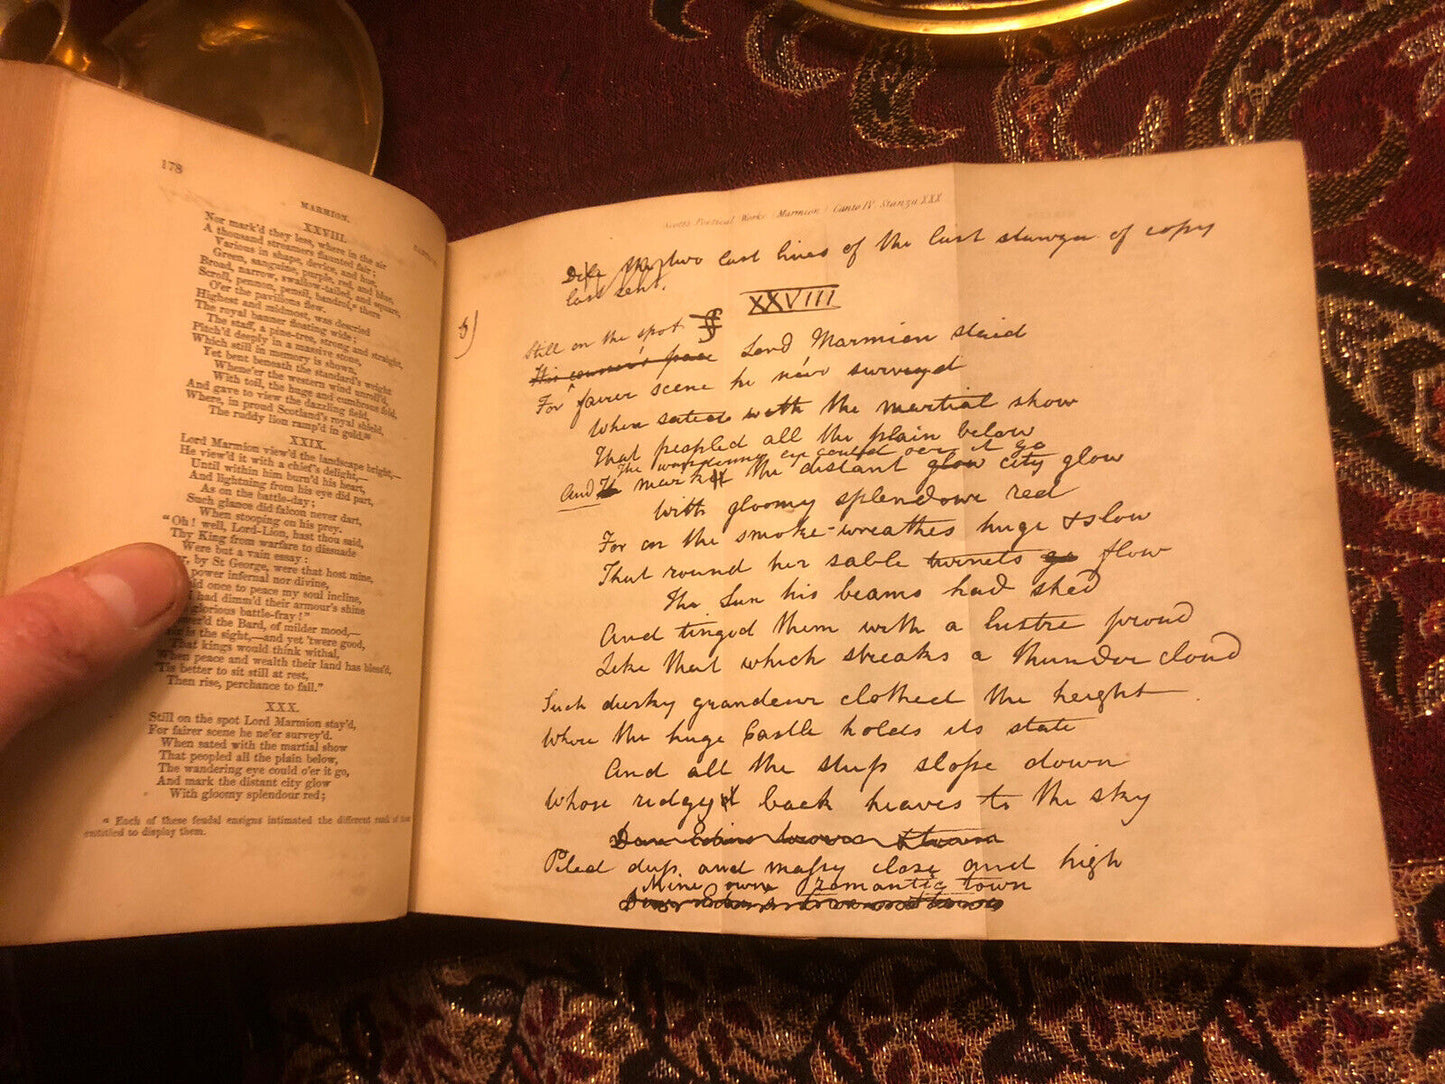 178
MARMION.
XXVIII.
Nor mark'd they less, where in the air
A thousand streamers flaunted fair;
Various in shape, device, and hue,
Green, sanguine, purple, red, and blue,
Broad, narrow, swallow-tailed, and square,
Scroll, pennon, pensil, bandrol," there
O'er the pavilions flew.
Highest and midmost, was descried
The royal banner floating wide;
The staff, a pine-tree, strong and straight,
Pitch'd deeply in a massive stone,
Which still in memory is shown,
Yet bent beneath the standard's weight
Whene'er the western wind unroll'd,
With toil, the huge and cumbrous fold,
And gave to view the dazzling field,
Where, in proud Scotland's royal shield,
The ruddy lion ramp'd in gold."
XXIX.
Lord Marmion view'd the landscape bright,—
He view'd it with a chief's delight,—
Until within him burn'd his heart,
And lightning from his eye did part,
As on the battle-day;
Such glance did falcon never dart,
When stooping on his prey.
"Oh! well, Lord-Lion, hast thou said,
Thy King from warfare to dissuade
Were but a vain essay:
by St George, were that host mine,
power infernal nor divine,
once to peace my soul incline,
had dimm'd their armour's shine
glorious battle-fray!"
the Bard, of milder mood,—
is the sight,—and yet 'twere good,
That kings would think withal,
When peace and wealth their land has bless'd,
'Tis better to sit still at rest,
Then rise, perchance to fall."
XXX.
Still on the spot Lord Marmion stay'd,
For fairer scene he ne'er survey'd.
When sated with the martial show
That peopled all the plain below,
The wandering eye could o'er it go,
And mark the distant city glow
With gloomy splendour red;
" Each of these feudal ensigns intimated the different rank of those
entitled to display them.
Scott's Poetical Works (Marmion) Canto IV. Stanza XXX
Dele the two last lines of the last stanza of copy
last sent.
XXVIII
5)
Still on the spot
Lord Marmion staid
For fairer scene he ne'er surveyd
When sated with the martial show
That peopled all the plain below
The wandering eye could oer it go
And mark the distant glow city glow
With gloomy splendour red
For on the smoke-wreathes huge & slow
That round her sable turrets go flow
The Sun his beams had shed
And tinged them with a lustre proud
Like that which streaks a thunder cloud
Such dusky grandeur clothed the height
Where the huge Castle holds its state
And all the steep slope down
Whose ridgy back heaves to the sky
Piled deep and massy close and high
Mine own romantic town